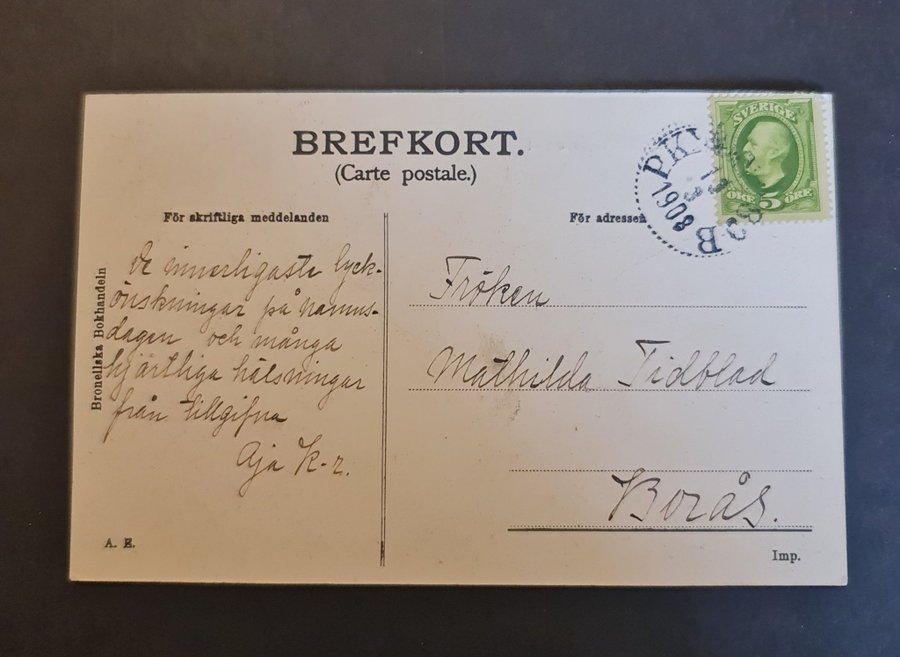 BREFKORT.
(Carte postale.)
För skriftliga meddelanden
För adressen
SVERIGE
5
ÖRE ÖRE
PKXP
1908
B
Bronellska Bokhandeln
De innerligaste lyck-
önskningar på namns-
dagen och många
hjärtliga hälsningar
från tillgifna
Aja K-r.
Fröken
Mathilda Tidblad
Borås.
A. E.
Imp.